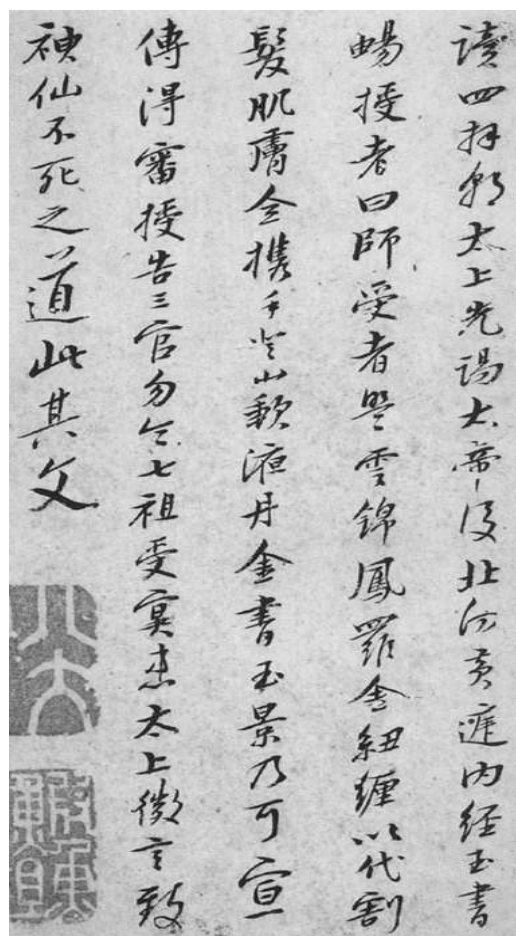 讀四拜朝太上先謁太帝後北向黃庭內經玉書
暢授者曰師受者盟雲錦鳳羅金紐纏以代割
髮肌膚全攜手登山歃液丹金書玉景乃可宣
傳得審授告三官勿令七祖受冥患太上微言致
神仙不死之道此其文